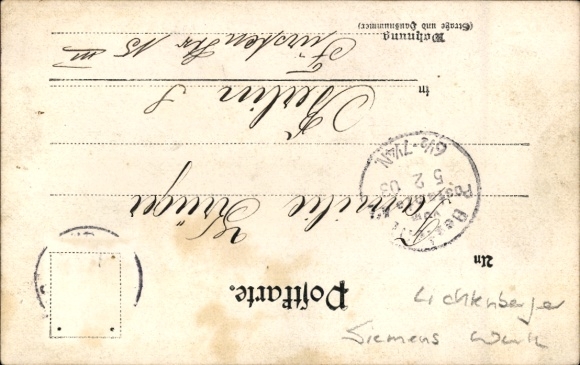 Postkarte.
An
Familie Krüger
in
Berlin S
Wohnung
(Straße und Hausnummer)
Fürsten Str 15 III
5 2 03
6½-7½N
Lichtenberger
Siemens